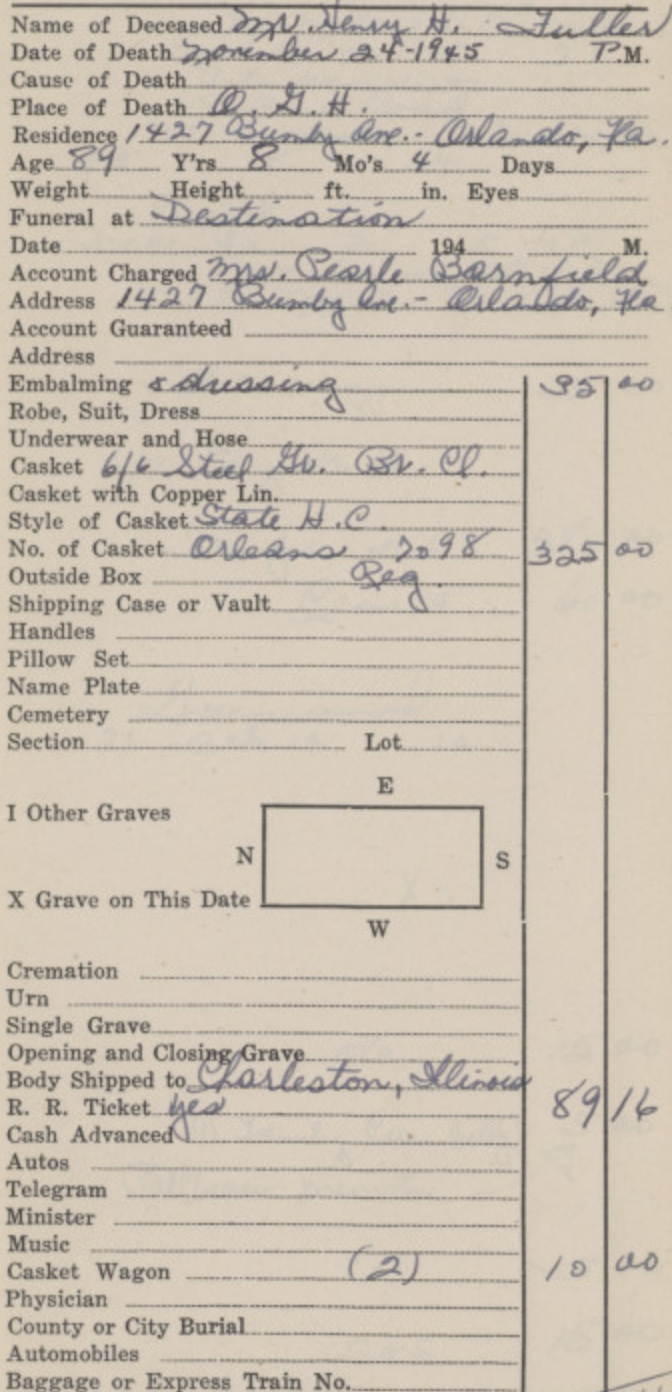 Name of Deceased Mr. Henry H. Fuller
Date of Death November 24-1945 P.M.
Cause of Death
Place of Death O. G. H.
Residence 1427 Bumby Ave.- Orlando, Fla.
Age 89 Y'rs 8 Mo's 4 Days
Weight Height ft. in. Eyes
Funeral at Destination
Date 194 M.
Account Charged Mrs. Pearle Barnfield
Address 1427 Bumby Ave.- Orlando, Fla
Account Guaranteed
Address
Embalming & dressing 35 00
Robe, Suit, Dress
Underwear and Hose
Casket 6/6 Steel Gr. Br. Cl.
Casket with Copper Lin.
Style of Casket State H.C.
No. of Casket Orleans 7098 325 00
Outside Box Reg.
Shipping Case or Vault
Handles
Pillow Set
Name Plate
Cemetery
Section Lot
E
I Other Graves
N S
X Grave on This Date
W
Cremation
Urn
Single Grave
Opening and Closing Grave
Body Shipped to Charleston, Illinois
R. R. Ticket yes 89 16
Cash Advanced
Autos
Telegram
Minister
Music
Casket Wagon (2) 10 00
Physician
County or City Burial
Automobiles
Baggage or Express Train No.